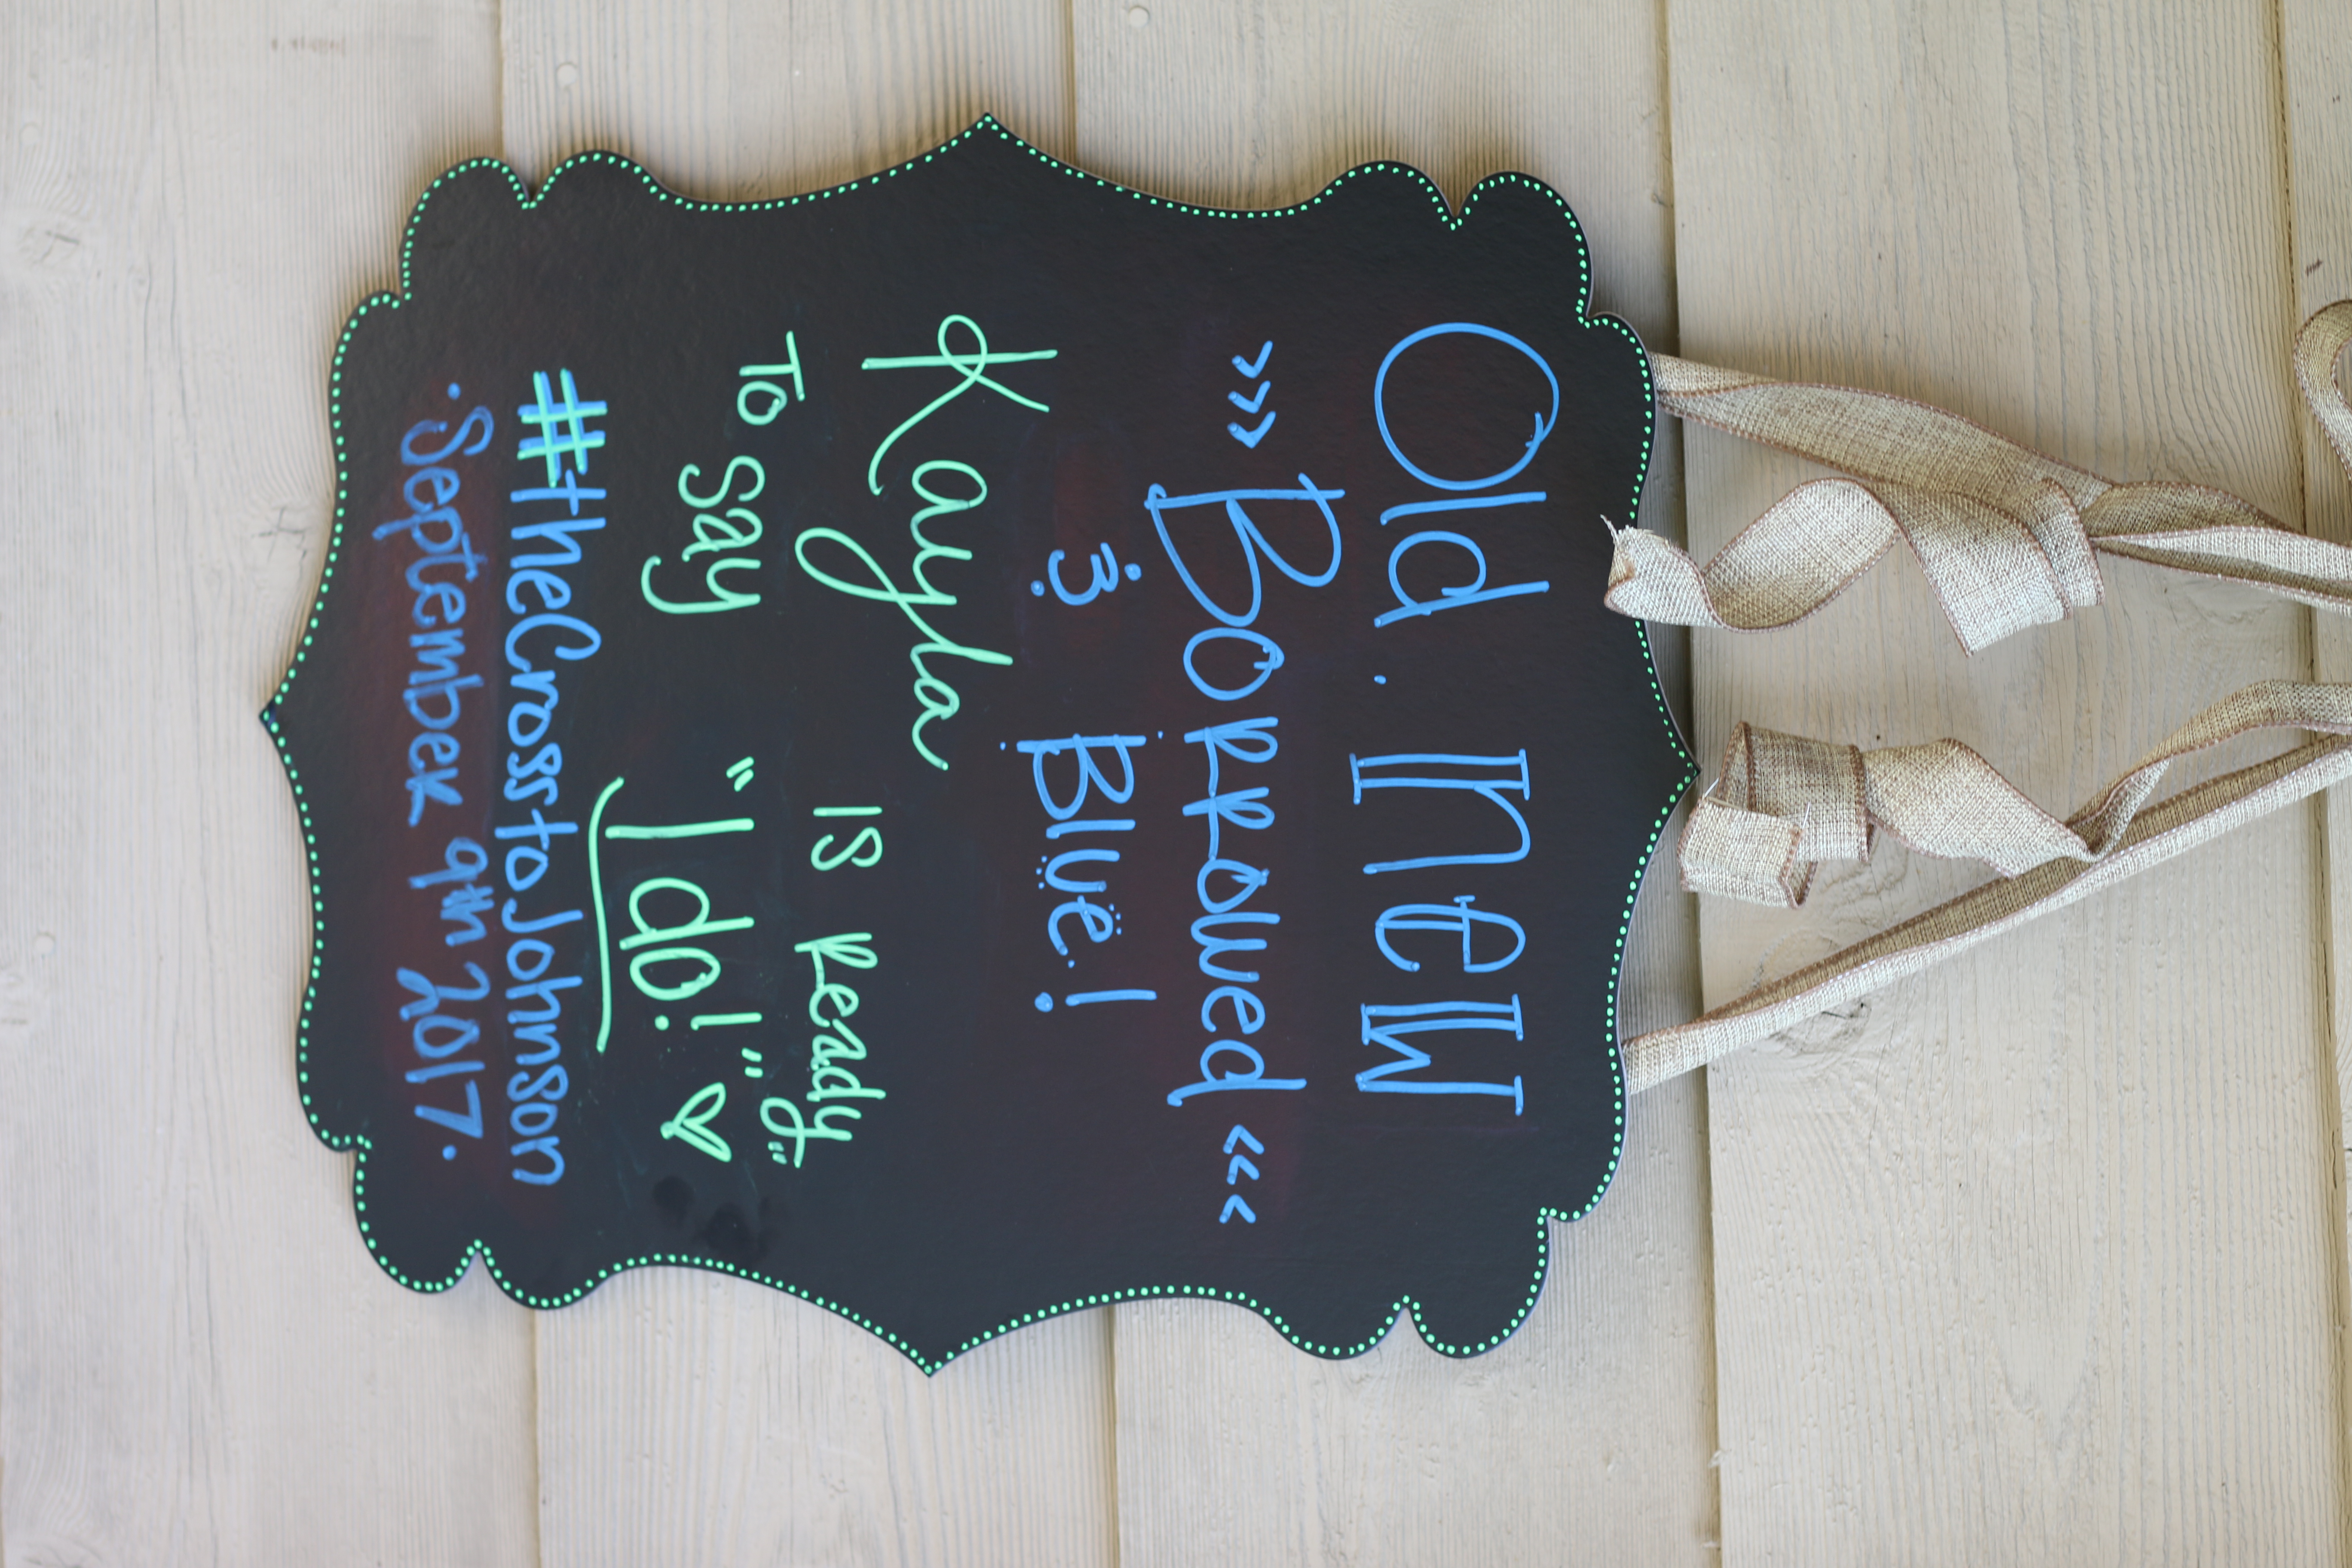 Old . New
>>> Borrowed <<<
& Blue!
Kayla is Ready
To say "I do!"
#theCrosstoJohnson
·September 9th 2017.